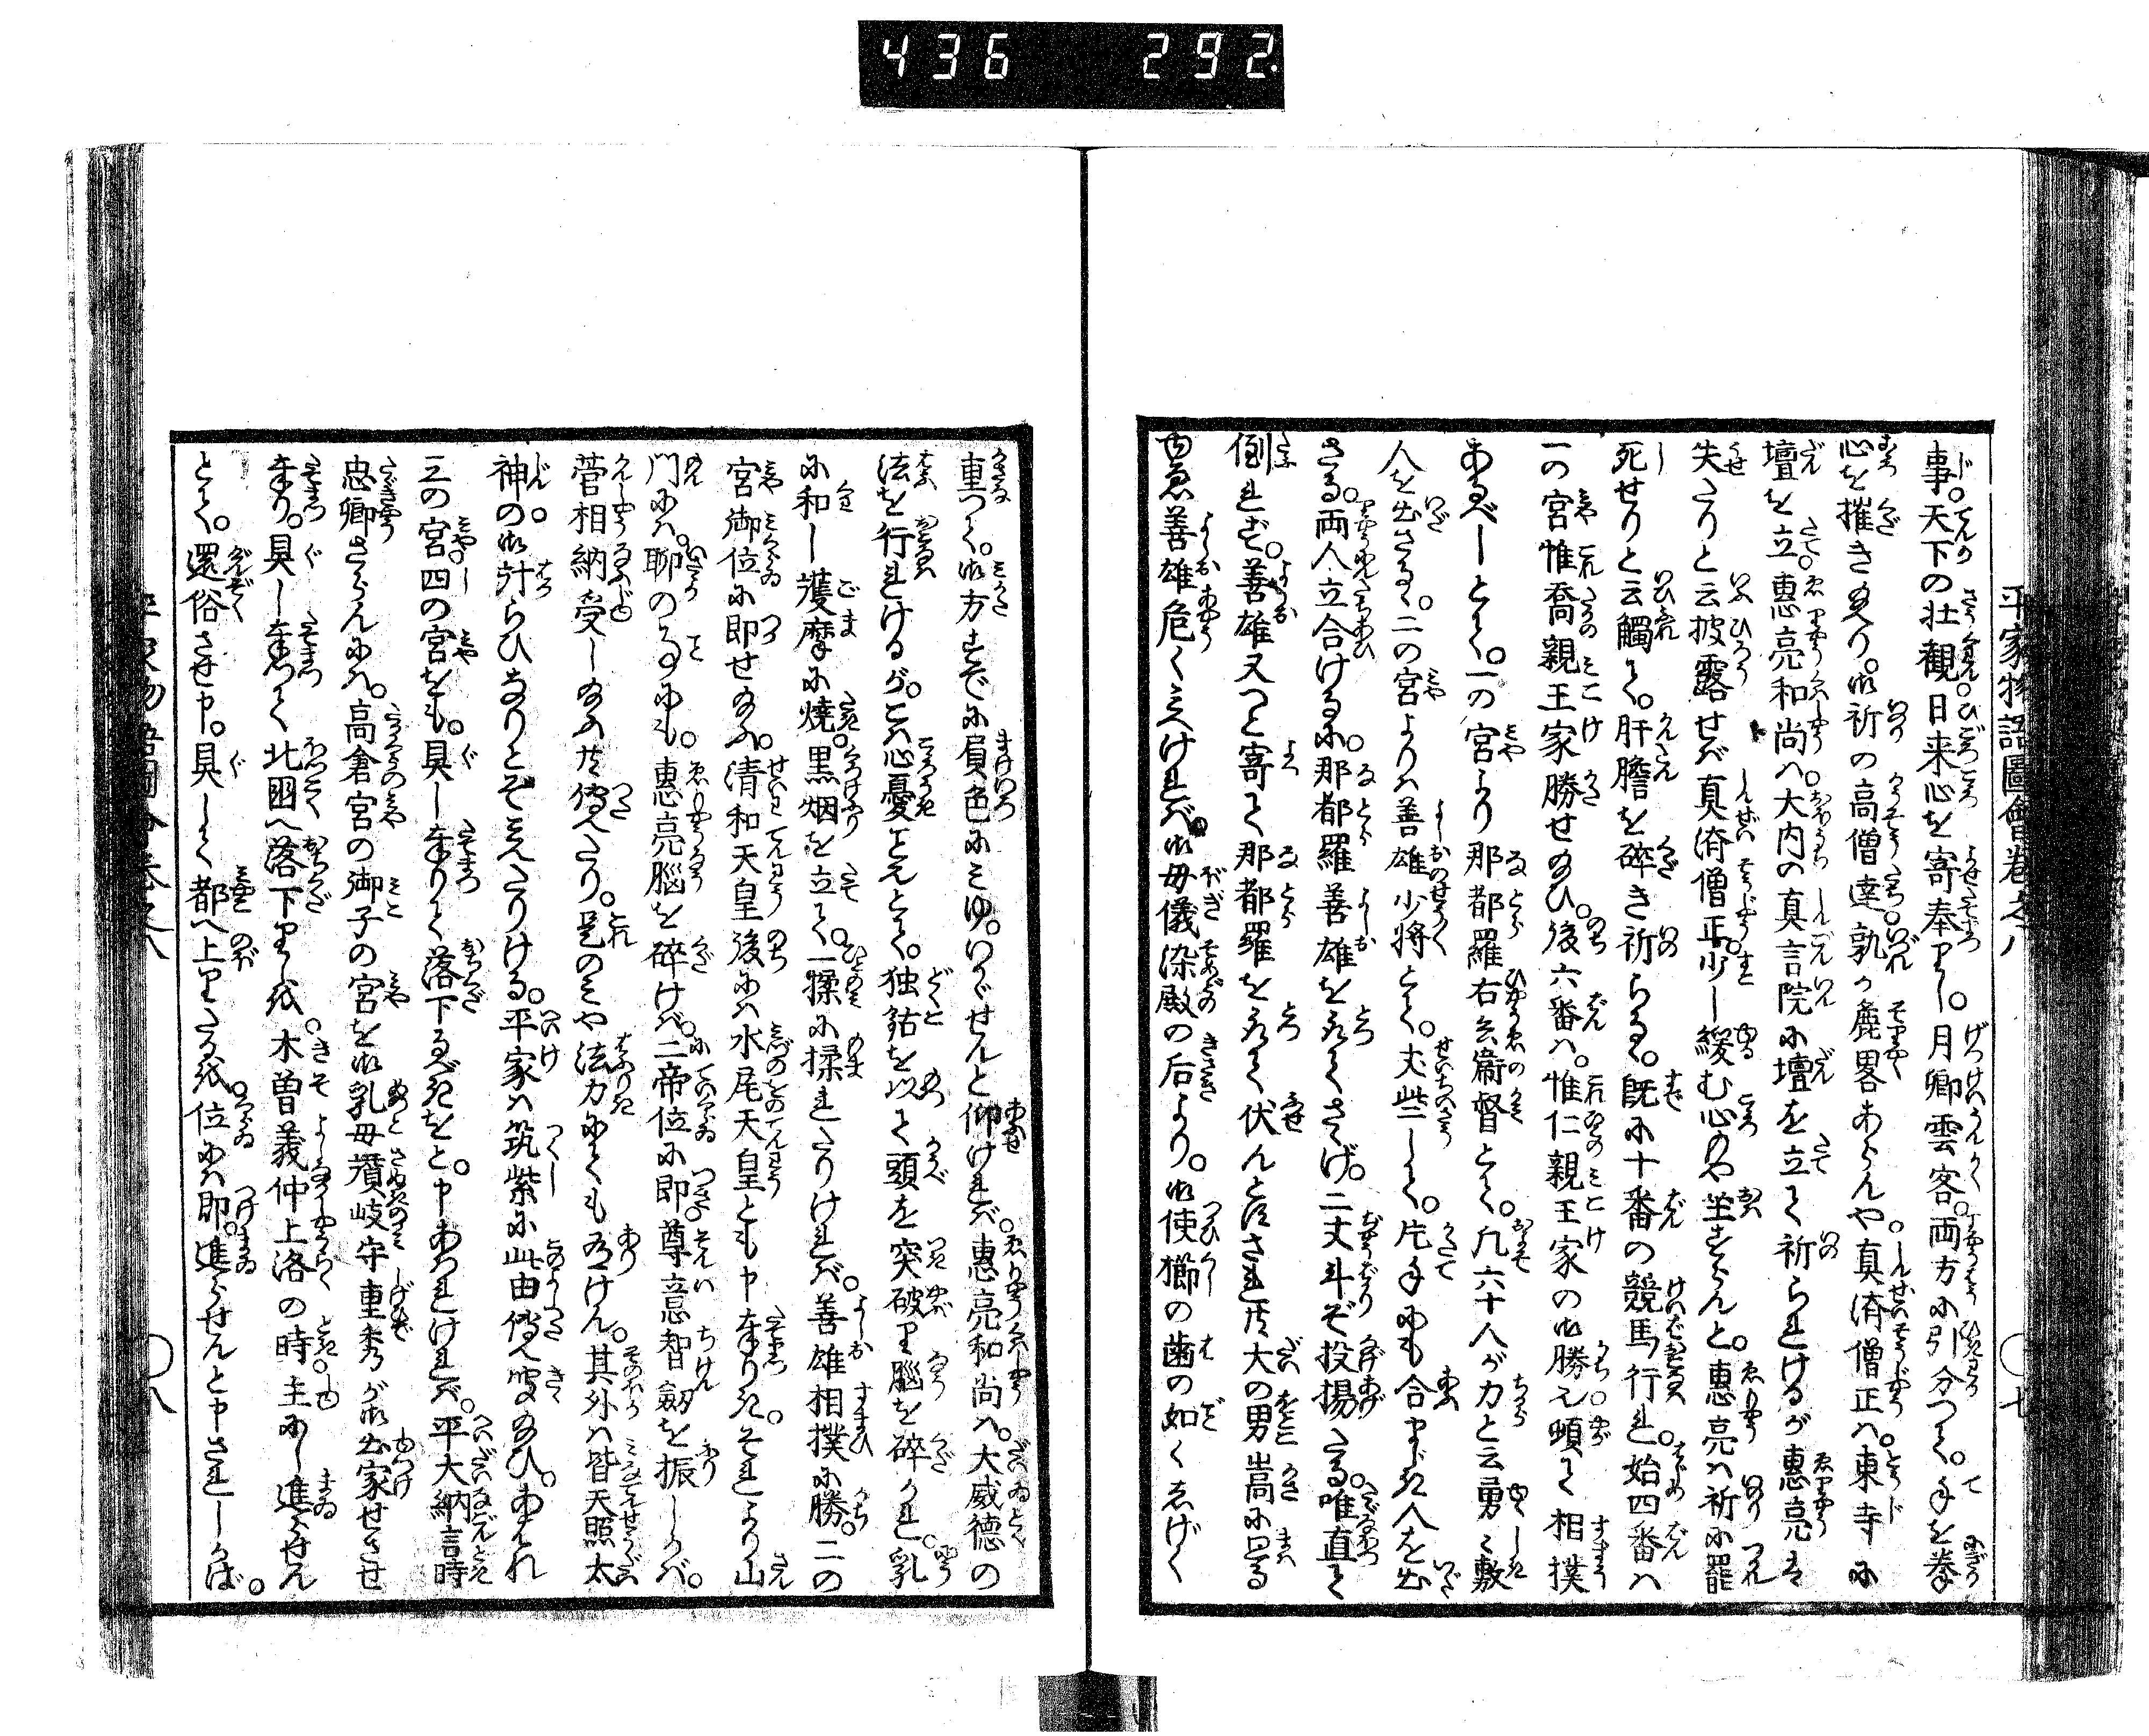 436 292
平家物語圖會卷之八
〇七
事。天下の壮観。日来心を寄奉りし。月卿雲客。両方に引分つて。手を拳
心を摧き給へり。御祈の高僧達孰か麁畧あらんや。真済僧正ハ。東寺に
壇を立。惠亮和尚ハ。大内の真言院に壇を立て祈られけるが惠亮は
失たりと云披露せバ真済僧正。少し緩む心のや坐すらんと。惠亮ハ祈に罷
死せりと云觸て。肝膽を碎き祈らる。既に十番の競馬行れ。始四番ハ
一の宮惟喬親王家勝せ給ひ。後六番ハ。惟仁親王家の御勝え頓て相撲
あるべしとて。一の宮より那都羅右兵衞督とて。凡六十人が力と云勇々敷
人を出さる。二の宮よりハ善雄少将とて。丈些して。片手にも合まじき人を出
さる。両人立合けるに。那都羅善雄を取てさゝげ。二丈斗ぞ投揚たる。唯直て
倒れず。善雄又つと寄て那都羅を取て伏んとはされ共大の男嵩に罩る
由急善雄危く見へけれバ。御母儀染殿の后より。御使櫛の歯の如くしげく
重つて。御方すでに負色に見ゆ。いかゞせんと仰けれバ。惠亮和尚ハ。大威徳の
法を行れけるが。こハ心憂ことえとて。独鈷を以て頭を突破り脳を碎かれ。乳
に和し護摩に焼。黒烟を立て。一揉に揉れたりけれバ。善雄相撲に勝。二の
宮御位に即せ給ふ。清和天皇後にハ水尾天皇とも申奉りき。それより山
門にハ。聊の事にも。惠亮脳を碎けバ。二帝位に即。尊意智劔を振しかバ。
菅相納受し給ふ共傳へたり。是のミや法力にても有けん。其外ハ皆天照太
神の。御計らひなりとぞ見へたりける。平家ハ筑紫に此由傳へ聞給ひ。あはれ
三の宮四の宮をも。具し奉りて落下るべきをと。申あはれけれバ。平大納言時
忠卿さらんにハ。高倉宮の御子の宮を御乳母讃岐守重秀が御出家せさせ
奉り。具し奉つて北国へ落下りしを。木曽義仲上洛の時主にし進らせん
とて。還俗させ申。具して都へ上りたるを。位にハ即。進らせんと申されしかば。